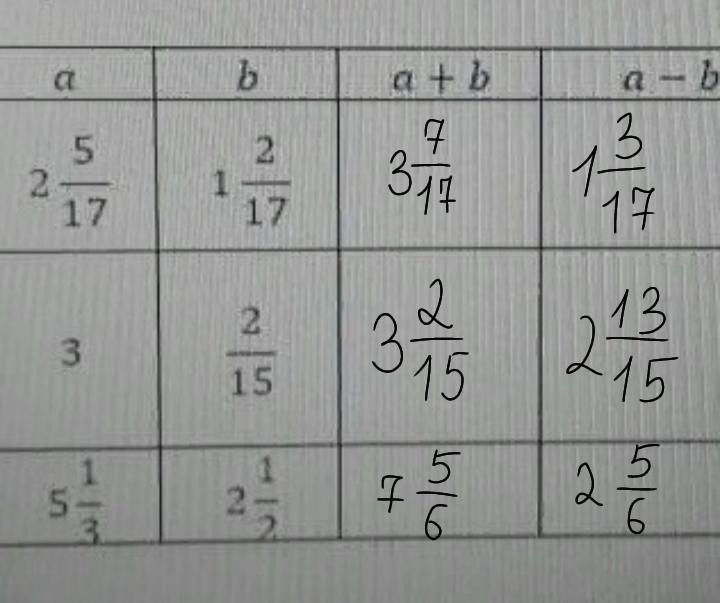 a b a + b a − b
2 5/17 1 2/17 3 7/17 1 3/17
3 2/15 3 2/15 2 13/15
5 1/3 2 1/2 7 5/6 2 5/6